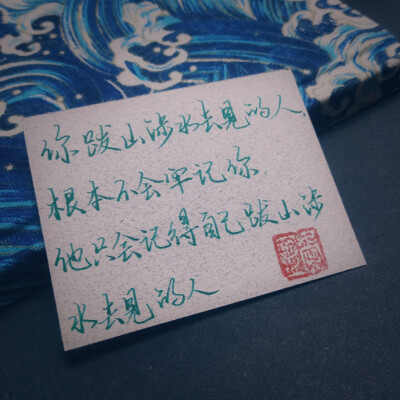 你跋山涉水去见的人,
根本不会牢记你,
他只会记得自己跋山涉
水去见的人